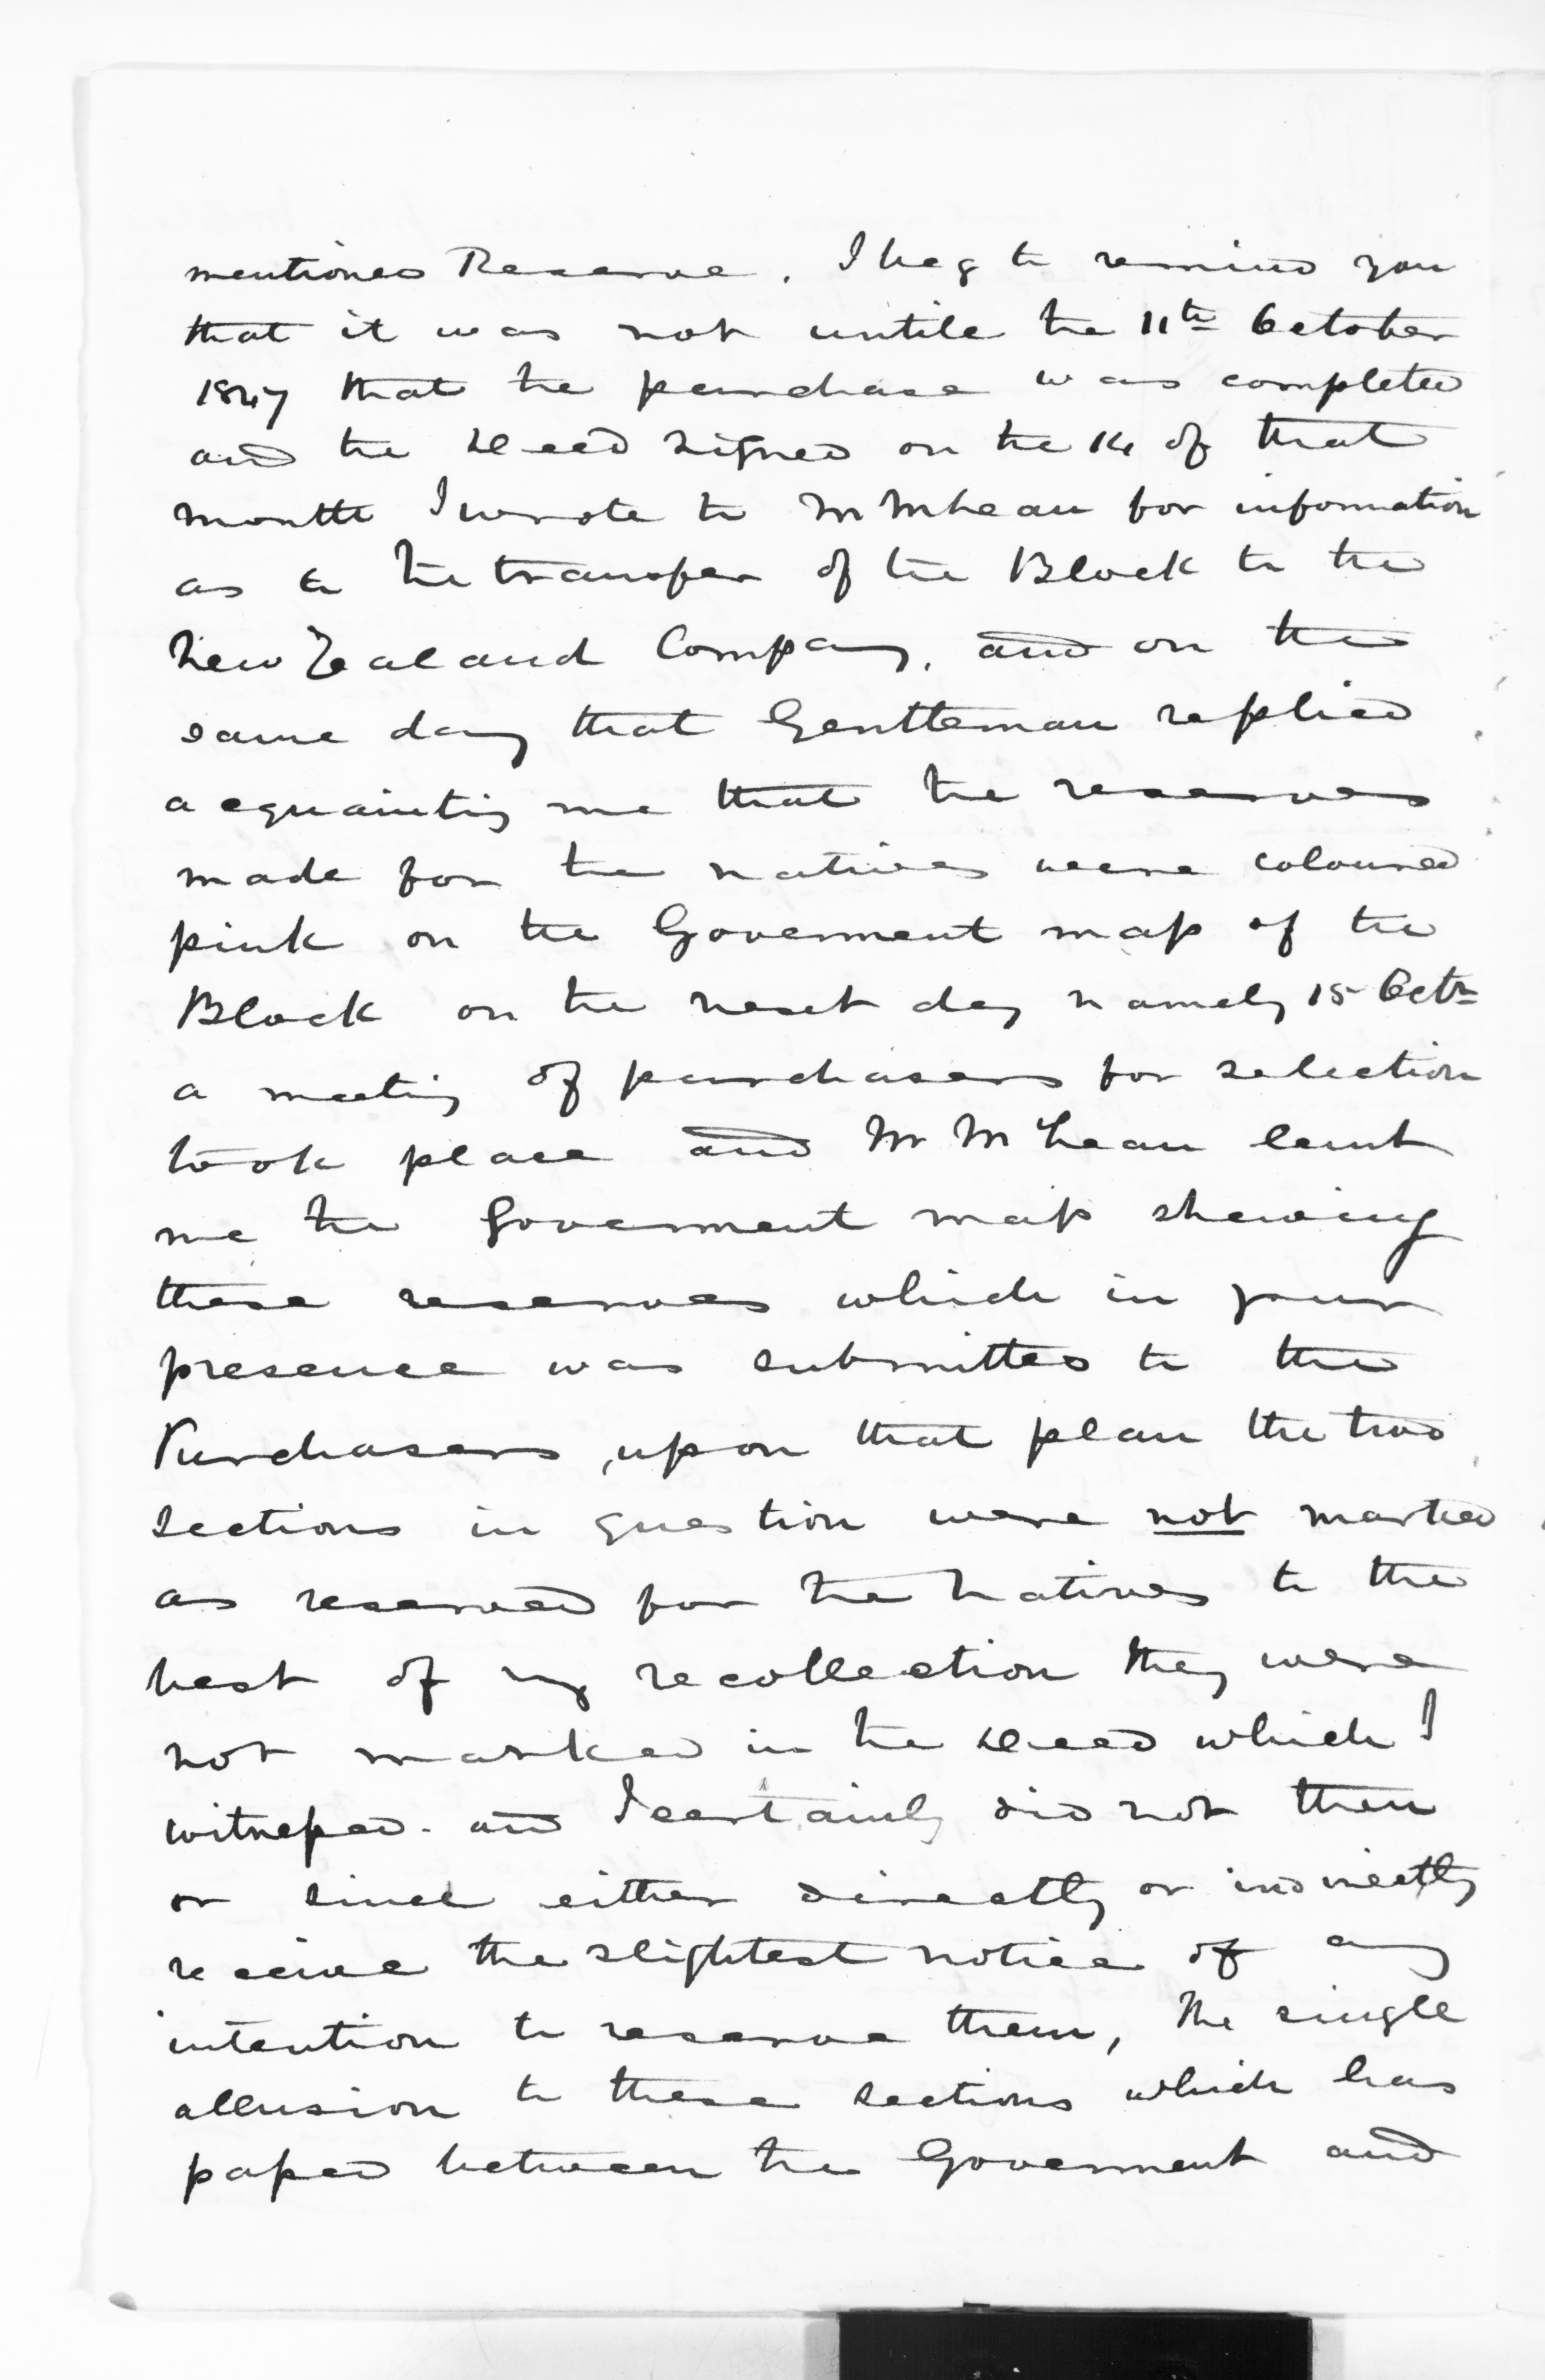 mentioned Reserve. I beg to remind you
that it was not untile the 11th October
1847 that the purchase was completed
and the Deed signed on the 14 of that
month I wrote to Mr McLean for information
as to the transfer of the Block to the
New Zealand Company, and on the
same day that Gentleman replied
acquainting me that the reserves
made for the natives were coloured
pink on the Government map of the
Block on the next day namely 15 Octr
a meeting of purchasers for selection
took place and Mr McLean lent
me the Government map shewing
these reserves which in your
presence was submitted to the
Purchasers, upon that plan the two
sections in question were not marked
as reserved for the Natives to the
best of my recollection they were
not marked in the Deed which I
witnessed. and I certainly did not then
or since either directly or indirectly
receive the slightest notice of any
intention to reserve them, The single
allusion to these sections which has
passed between the Government and